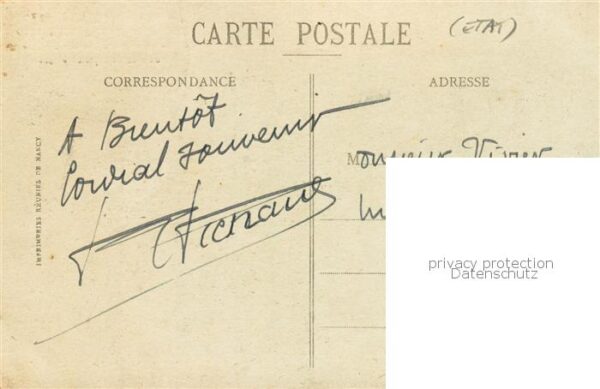 CARTE POSTALE (ETAT)
CORRESPONDANCE
ADRESSE
A Bientôt
Cordial souvenir
Monsieur
IMPRIMERIES RÉUNIES DE NANCY
privacy protection
Datenschutz